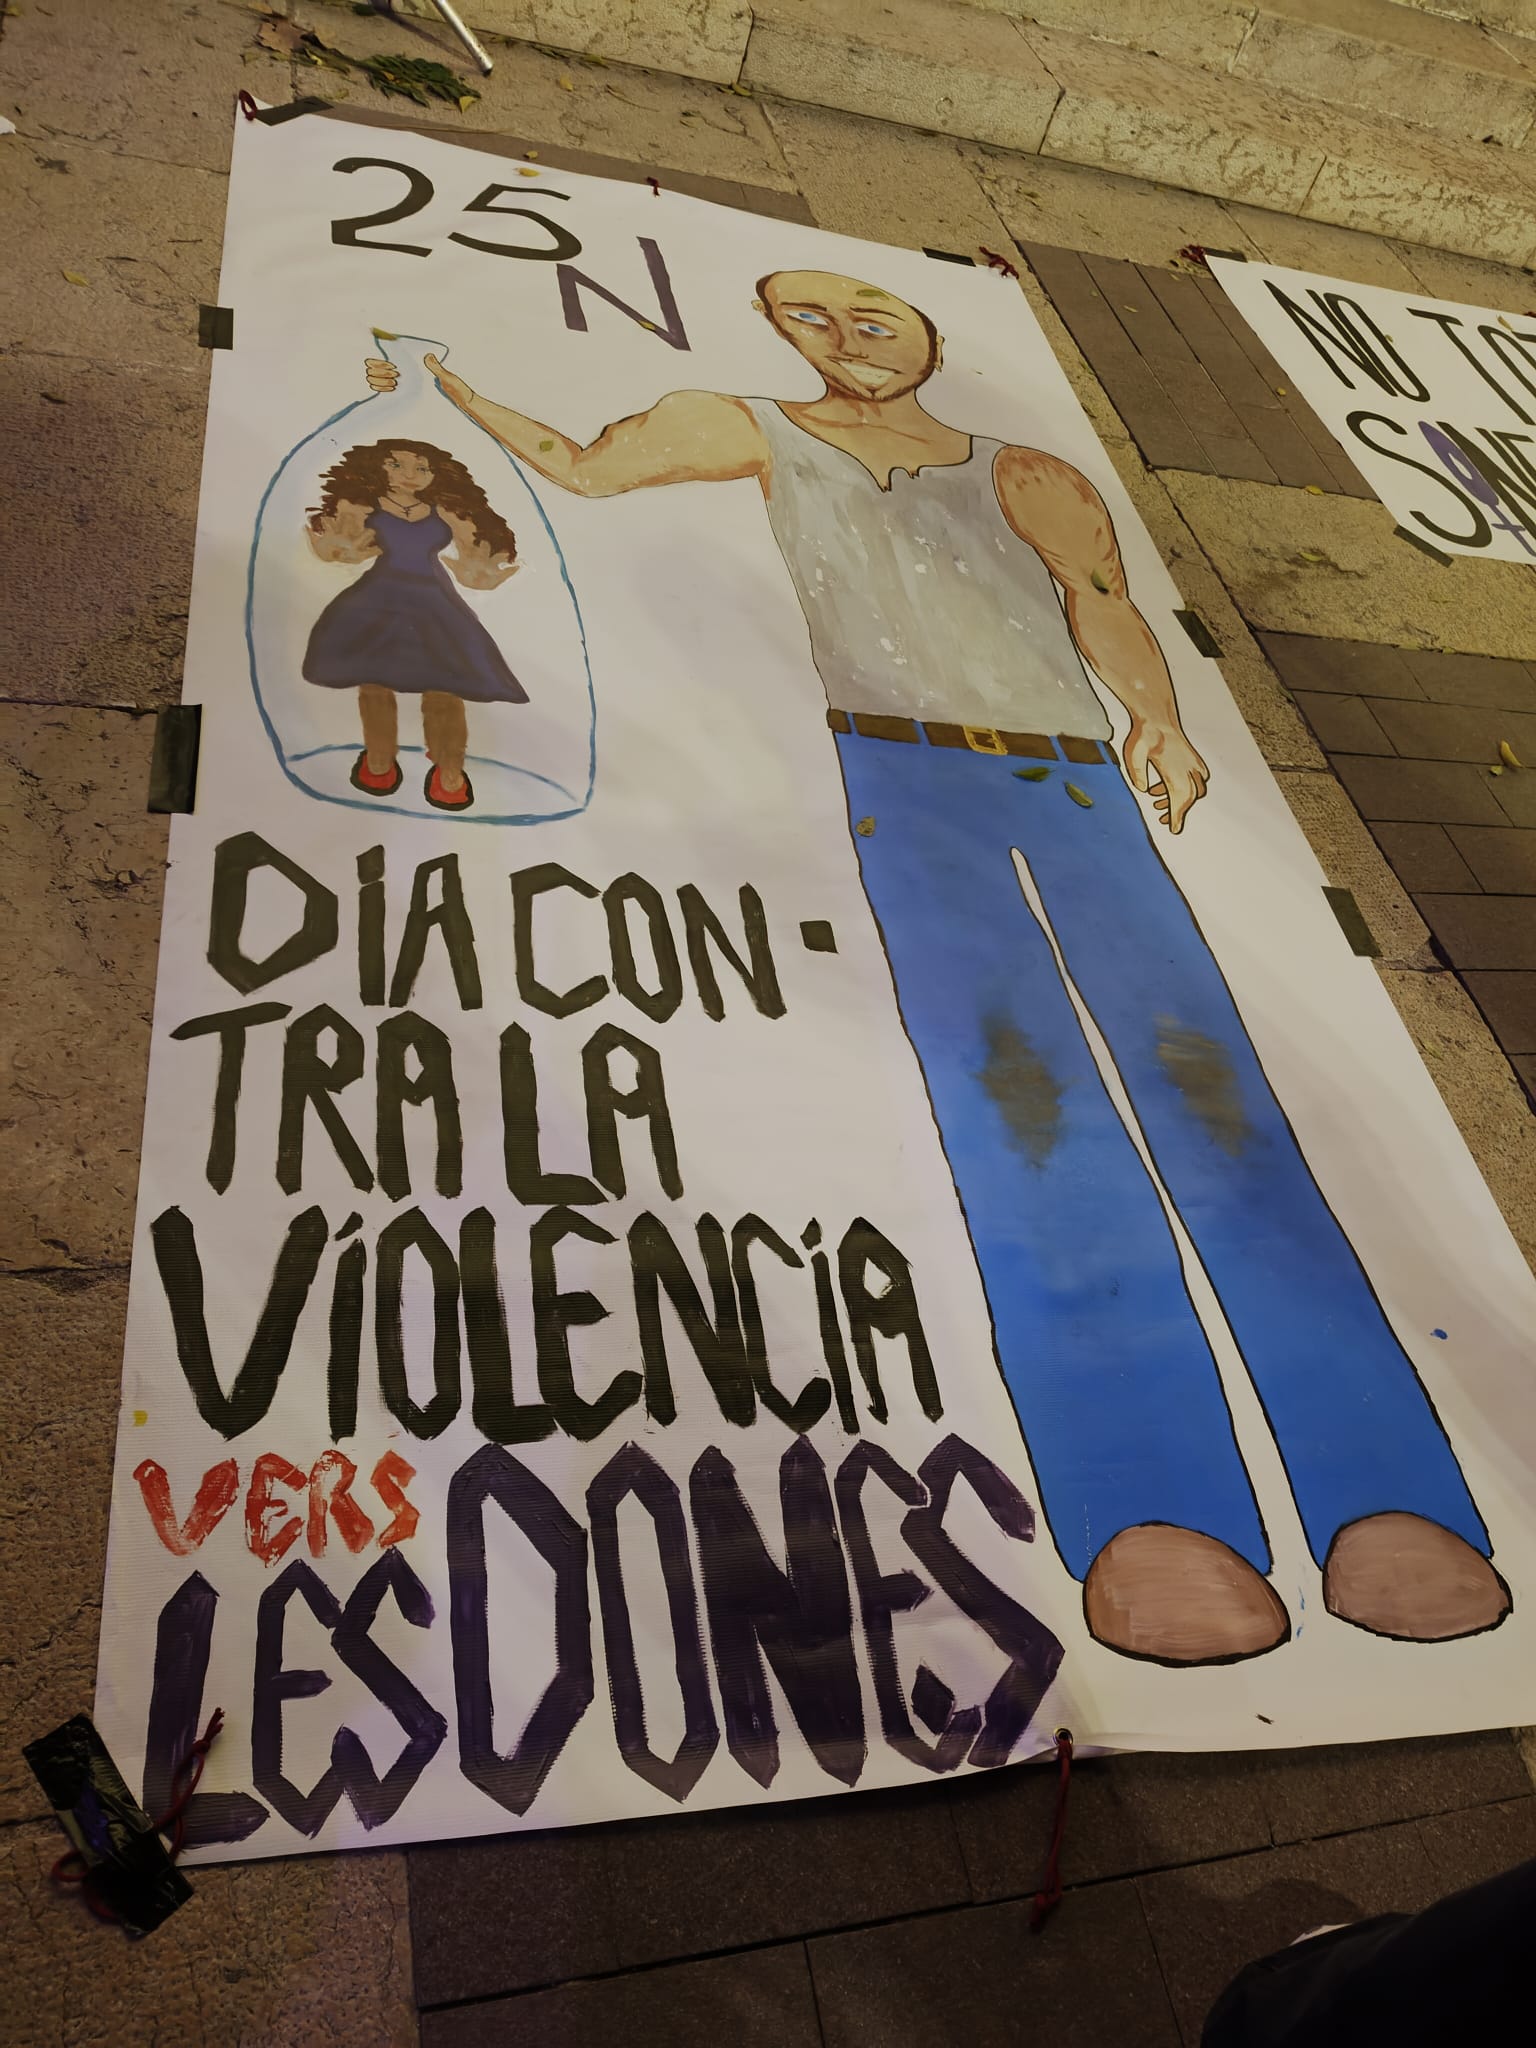 25 N
DIA CON-
TRA LA
VIOLENCIA
VERS
LES DONES
NO